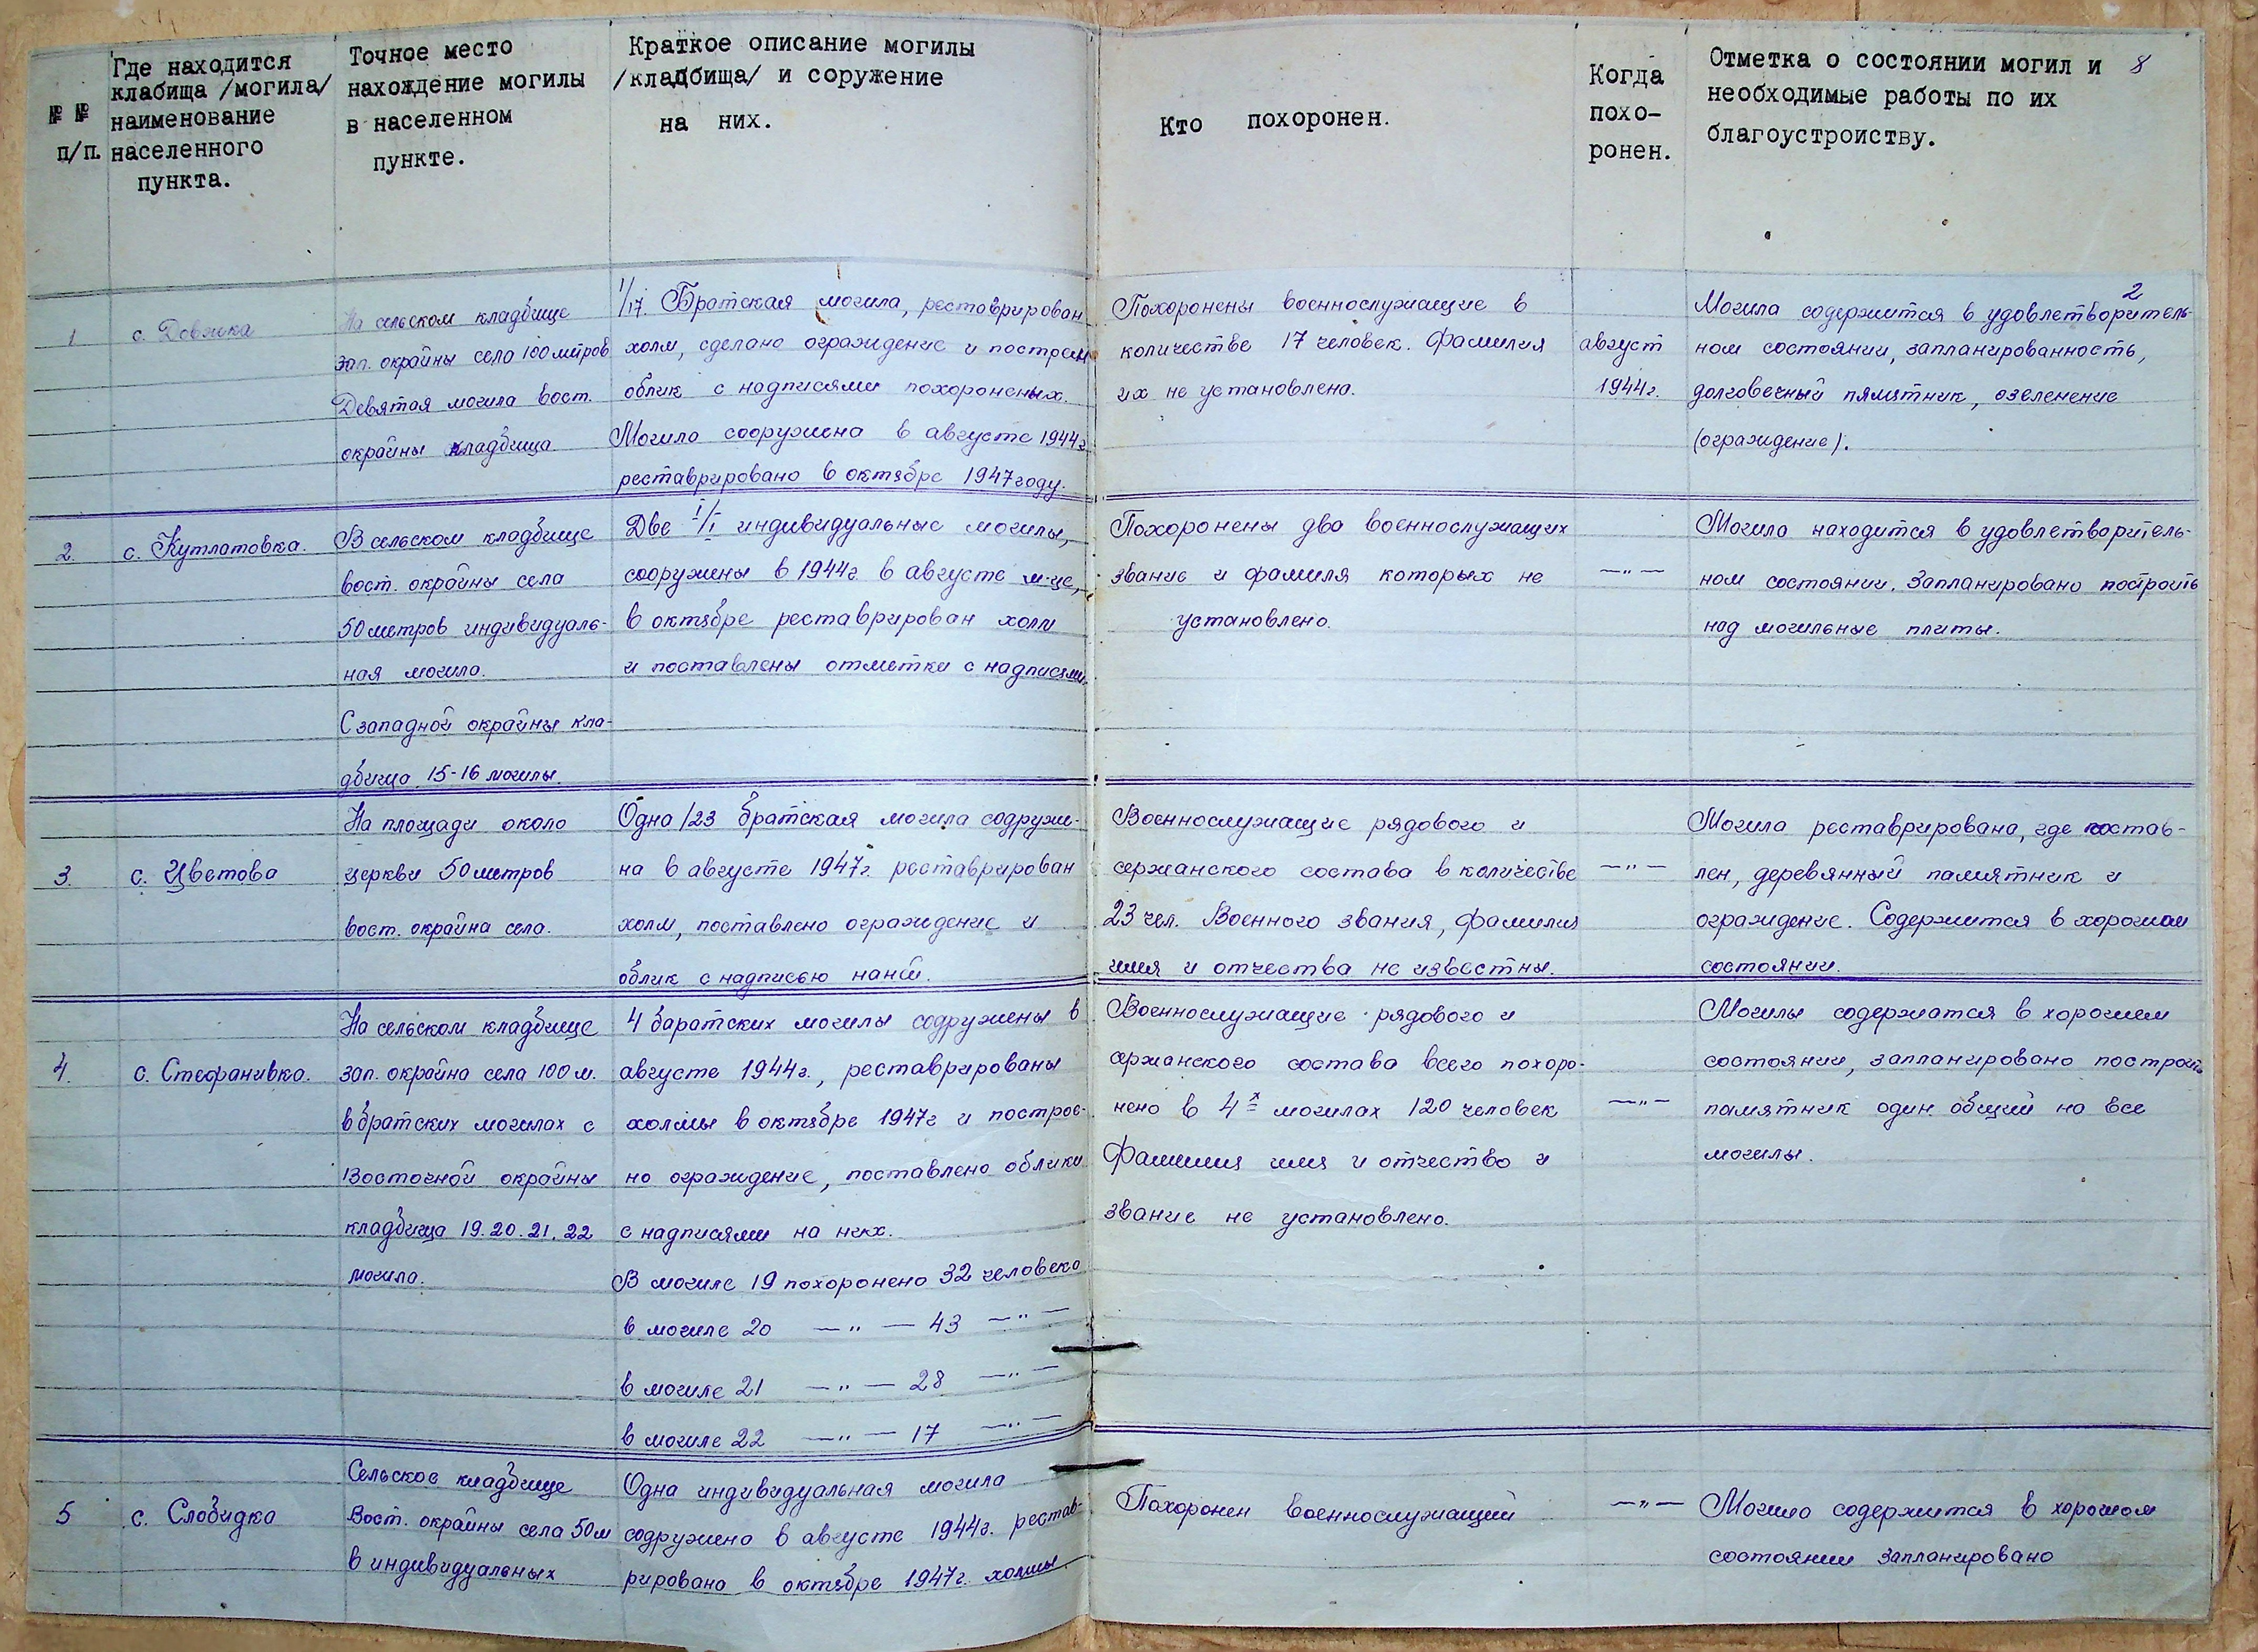 № №
п/п.
Где находится
клабища /могила/
наименование
населенного
пункта.
Точное место
нахождение могилы
в населенном
пункте.
Краткое описание могилы
/кладбища/ и соружение
на них.
Кто похоронен.
Когда
похо-
ронен.
Отметка о состоянии могил и
необходимые работы по их
благоустроиству.
8
2
1
с. Довжка
На сельском кладбище
зап. окрайны села 100 метров
Девятая могила вост.
окрайны кладбища
1/17. Братская могила, реставрирован
холм, сделано ограждение и построен
облик с надписями похороненых.
Могила сооружена в августе 1944 г
реставрировано в октябре 1947 году.
Похоронены военнослужащие в
количестве 17 человек. Фамилия
их не установлена.
август
1944 г.
Могила содержится в удовлетворитель-
ном состоянии, запланированность,
долговечный пямятник, озеленение
(ограждение).
2.
с. Кутлатовка.
В сельском кладбище
вост. окрайны села
50 метров индивидуаль-
ная могила.
С западной окрайны кла-
дбища 15-16 могилы.
Две 1/1 индивидуальные могилы,
сооружены в 1944 г. в августе м-це,
в октябре реставрирован холм
и поставлены отметки с надписями.
Похоронены два военнослужащих
звание и фамиля которых не
установлено.
—"—
Могила находится в удовлетворитель-
ном состоянии. Запланировано построить
над могильные плиты.
3.
с. Цветова
На площади около
церкви 50 метров
вост. окрайна села.
Одна /23 братская могила содруже-
на в августе 1947 г. реставрирован
холм, поставлено ограждение и
облик с надписью
Военнослужащие рядового и
сержанского состава в количестве
23 чел. Военного звания, фамилия
имя и отчества не известны.
—"—
Могила реставрирована, где постав-
лен, деревянный памятник и
ограждение. Содержится в хорошом
состоянии.
4.
с. Стефанивка.
На сельском кладбище
зап. окрайна села 100 м.
в братских могилах с
Восточной окрайны
кладбища 19.20.21.22
могила.
4 баратских могилы содружены в
августе 1944 г., реставрированы
холмы в октябре 1947 г и построе-
но ограждение, поставлено облики
с надписями на них.
В могиле 19 похоронено 32 человека
в могиле 20 —"— 43 —"—
в могиле 21 —"— 28 —"—
в могиле 22 —"— 17 —"—
Военнослужащие рядового и
сержанского состава всего похоро-
нено в 4х могилах 120 человек
Фамилия имя и отчество и
звание не установлено.
—"—
Могилы содержатся в хорошем
состоянии, запланировано построить
памятник один общий на все
могилы.
5
с. Слобидка
Сельское кладбище
Вост. окрайны села 50 м
в индивидуальных
Одна индивидуальная могила
содружено в августе 1944 г. рестав-
рировано в октябре 1947 г. холмы
Похоронен военнослужащий
—"—
Могила содержится в хорошом
состоянии запланировано